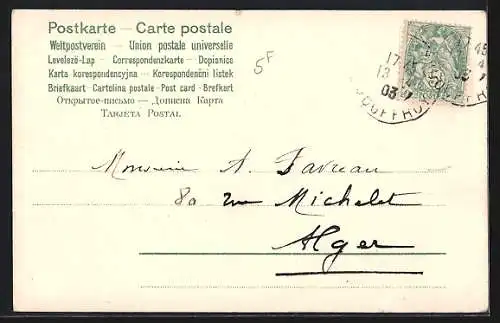 Postkarte — Carte postale
Weltpostverein — Union postale universelle
Levelező-Lap — Correspondenzkarte - Dopisnice
Karta korespondencyjna — Korespondenční lístek
Briefkaart - Cartolina postale - Post card - Brefkort
Открытое-письмо — Дописна Карта
Tarjeta Postal
5F
17
13
03
Monsieur A. Favreau
80 rue Michelet
Alger